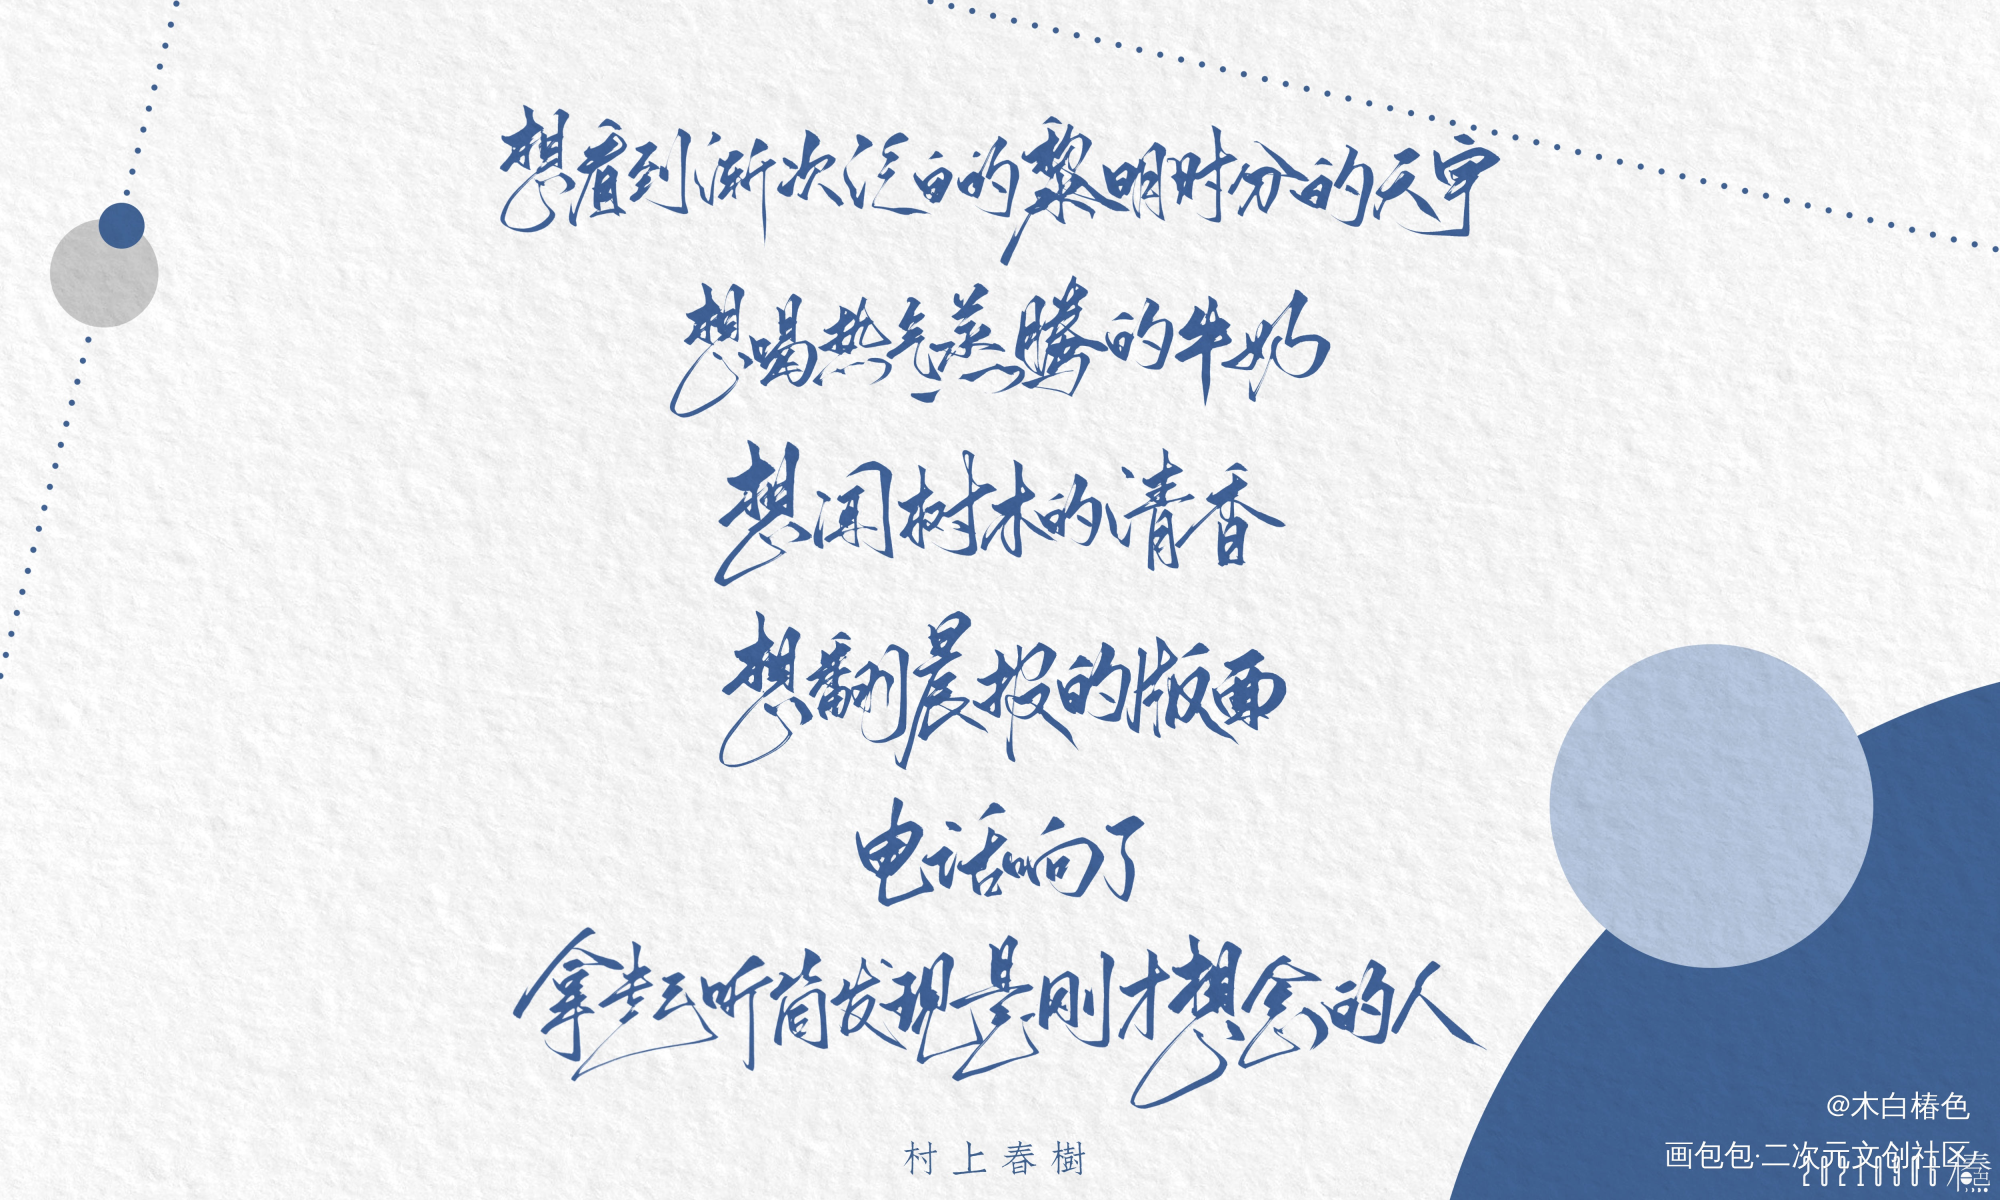 想看到渐次泛白的黎明时分的天宇
想喝热气蒸腾的牛奶
想闻树木的清香
想翻晨报的版面
电话响了
拿起听筒发现是刚才想念的人
村上春樹
@木白椿色
画包包·二次元文创社区